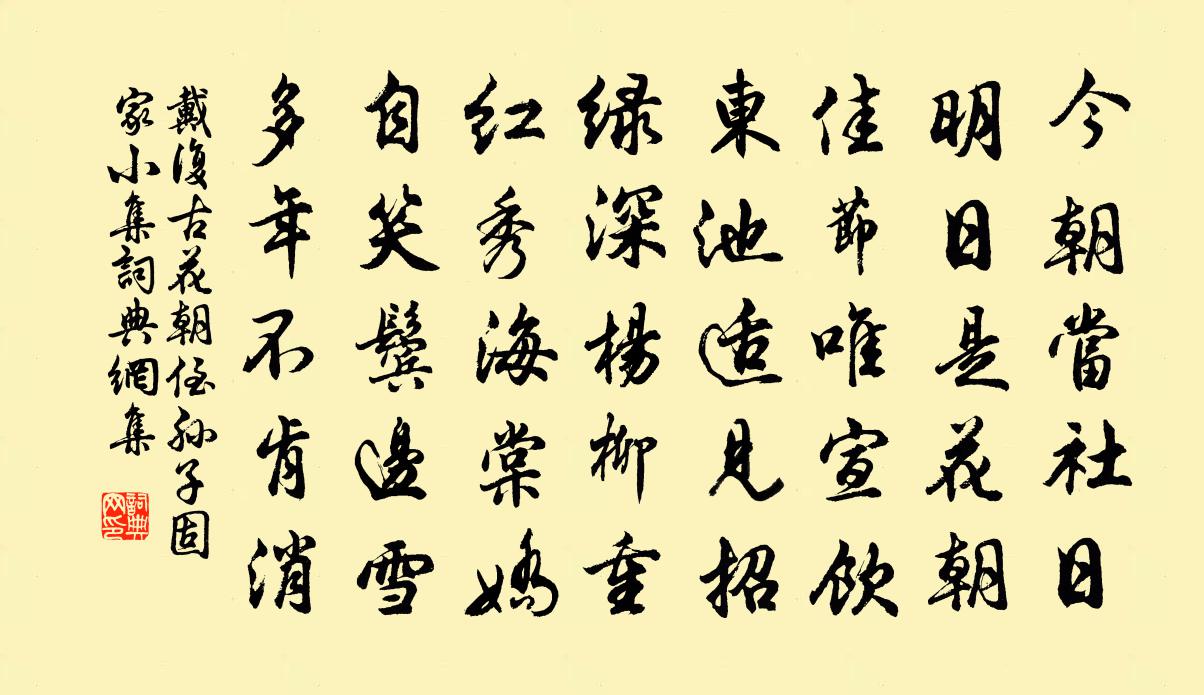 今朝當社日
明日是花朝
佳節唯宣飲
東池适見招
绿深楊柳重
红秀海棠嬌
自笑鬓邊雪
多年不肯消
戴復古花朝侄孙子固
家小集詞典網集
詞典网印